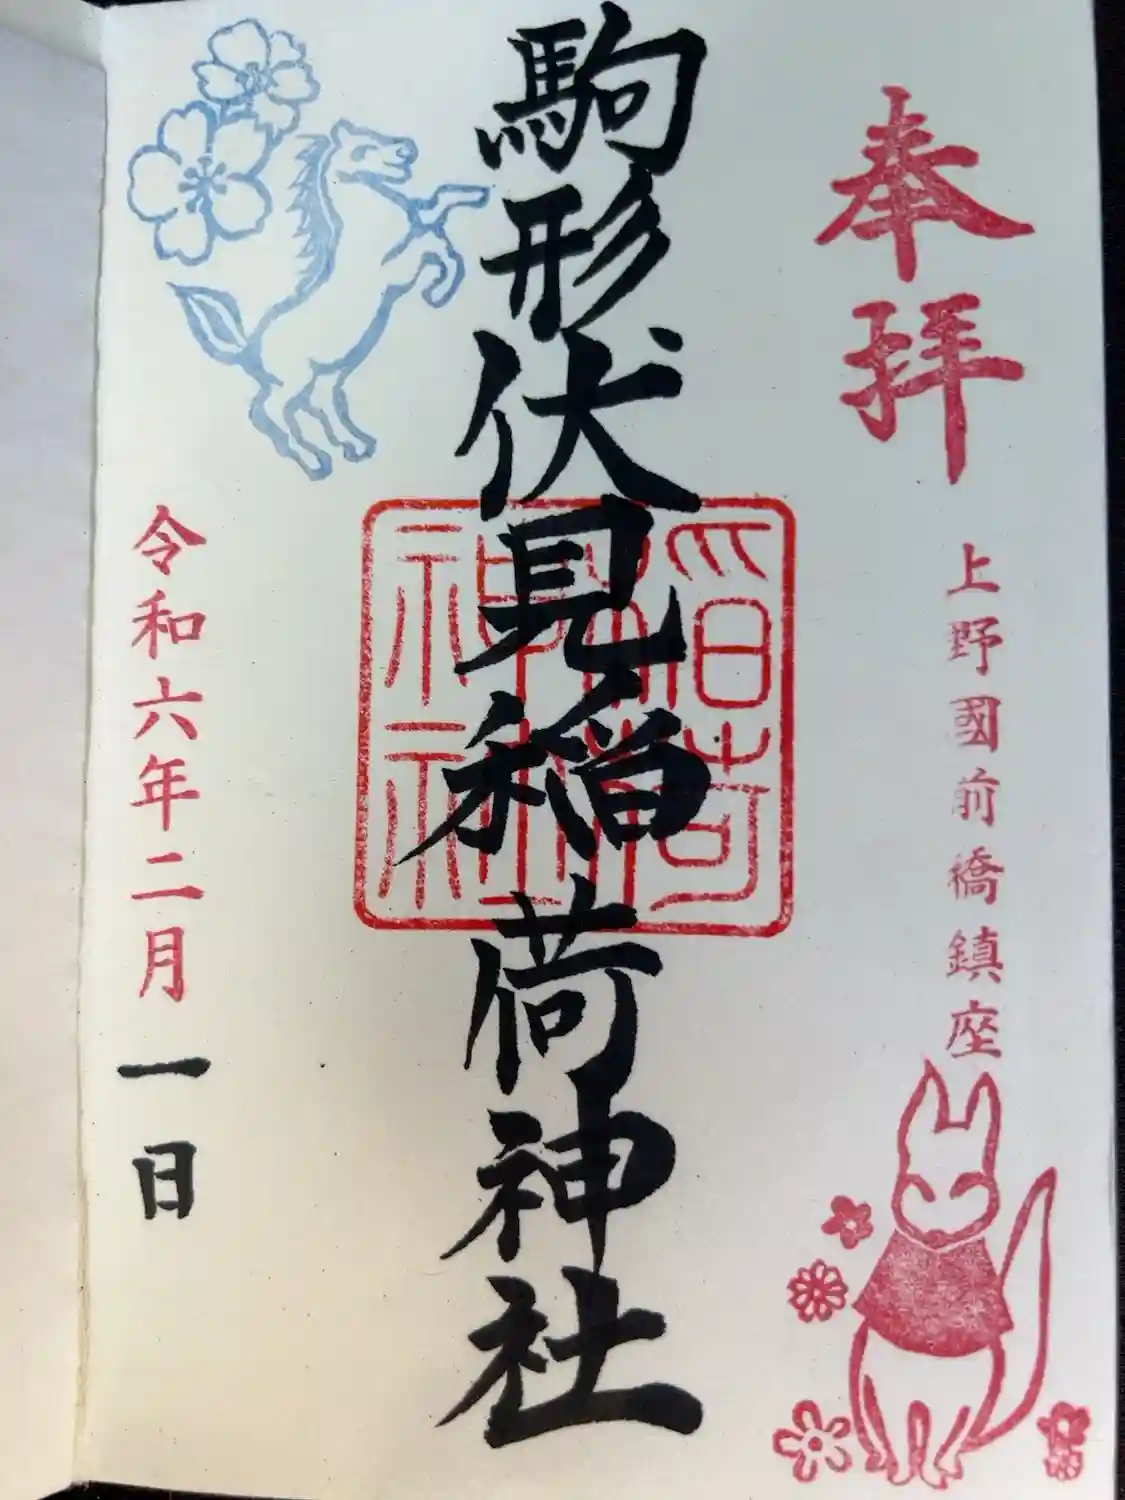 奉拝
上野國前橋鎮座
駒形伏見稲荷神社
稲荷神社
令和六年二月一日